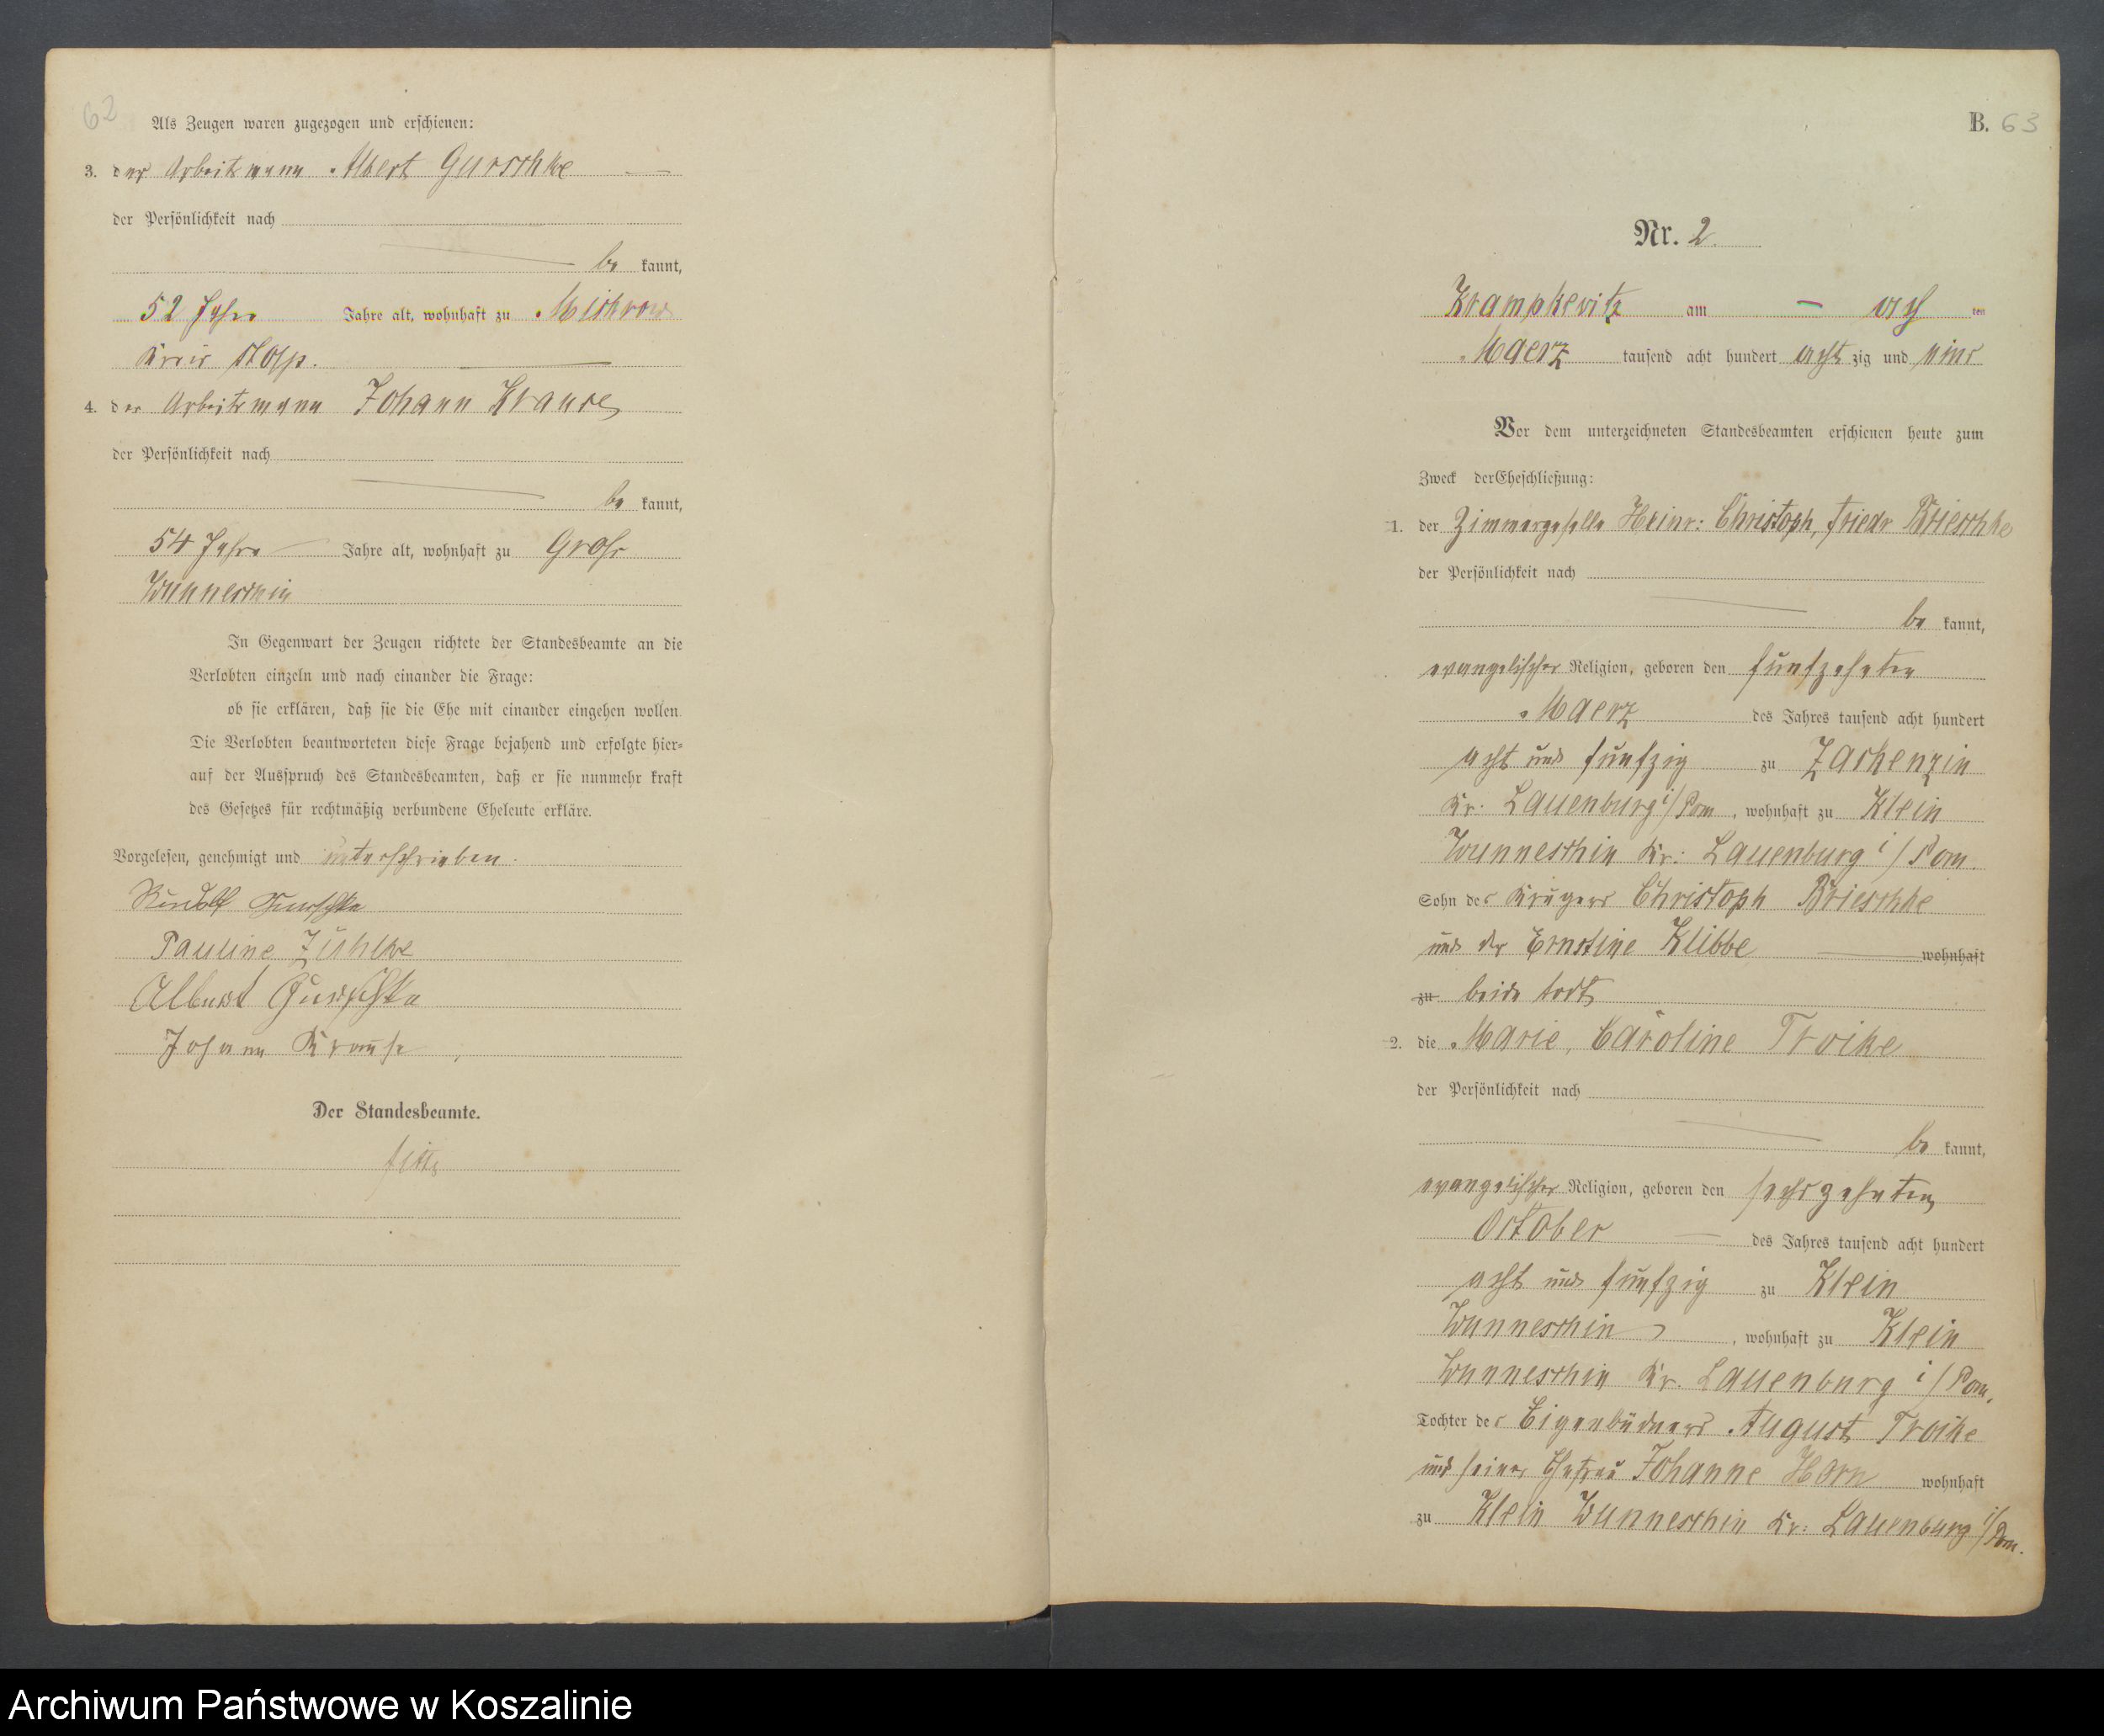 62
Als Zeugen waren zugezogen und erschienen:
3. der Arbeitsmann Albert Gurschke
der Persönlichkeit nach
be kannt,
52 Jahre Jahre alt, wohnhaft zu Mickrow
Kreis Stolp.
4. der Arbeitsmann Johann Krause
der Persönlichkeit nach
be kannt,
54 Jahre Jahre alt, wohnhaft zu Groß
Wunneschin
In Gegenwart der Zeugen richtete der Standesbeamte an die
Verlobten einzeln und nach einander die Frage:
ob sie erklären, daß sie die Ehe mit einander eingehen wollen.
Die Verlobten beantworteten diese Frage bejahend und erfolgte hier-
auf der Ausspruch des Standesbeamten, daß er sie nunmehr kraft
des Gesetzes für rechtmäßig verbundene Eheleute erkläre.
Vorgelesen, genehmigt und unterschrieben.
Rudolf Gurschke
Pauline Zühlke
Albert Gurschke
Johann Krause
Der Standesbeamte.
B. 63
Nr. 2.
Krampkevitz am acht ten
Maerz tausend acht hundert acht zig und eins
Vor dem unterzeichneten Standesbeamten erschienen heute zum
Zweck der Eheschließung:
1. der Zimmergeselle Heinr: Christoph, Friedr Brieschke
der Persönlichkeit nach
be kannt,
evangelischer Religion, geboren den funfzehnten
Maerz des Jahres tausend acht hundert
acht und funfzig zu Zackenzin
Kr. Lauenburg i/Pom, wohnhaft zu Klein
Wunneschin Kr: Lauenburg i/Pom.
Sohn des Krügers Christoph Brieschke
und der Ernstine Klibbe wohnhaft
zu beide todt
2. die Marie, Caroline Troike
der Persönlichkeit nach
be kannt,
evangelischer Religion, geboren den sechszehnten
October des Jahres tausend acht hundert
acht und funfzig zu Klein
Wunneschin, wohnhaft zu Klein
Wunneschin Kr. Lauenburg i/Pom,
Tochter des Eigenbüdners August Troike
und seiner Ehefrau Johanne Horn wohnhaft
zu Klein Wunneschin Kr: Lauenburg i/Pom.
Archiwum Państwowe w Koszalinie